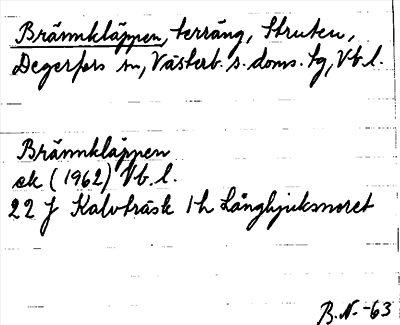 Brännkläppen, terräng, Struten,
Degerfors sn, Västerb. s. doms. tg, Vb. l.
Brännkläppen
ek (1962) Vb. l.
22 J Kalvträsk 1 h Långhjuksnoret
B. N. -63